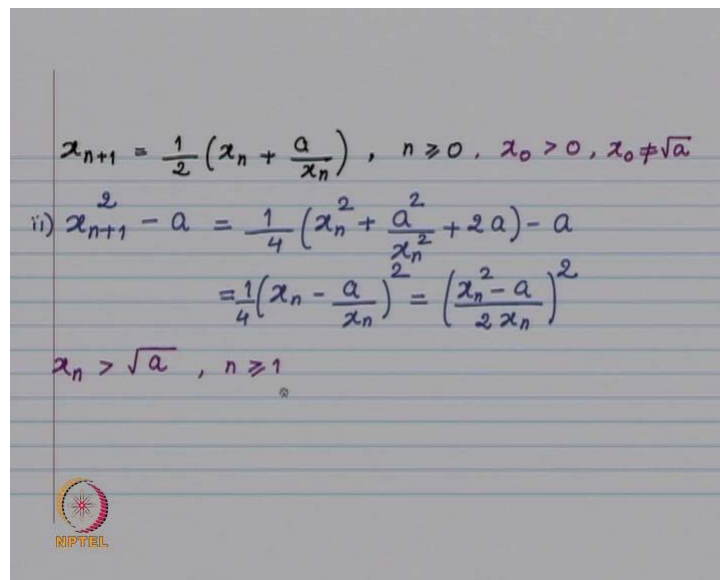 xₙ₊₁ = 1/2 (xₙ + a/xₙ), n ≥ 0, x₀ > 0, x₀ ≠ √a
ii) xₙ₊₁² − a = 1/4 (xₙ² + a²/xₙ² + 2a) − a
= 1/4 (xₙ − a/xₙ)² = ((xₙ² − a)/(2xₙ))²
xₙ > √a , n ≥ 1
NPTEL